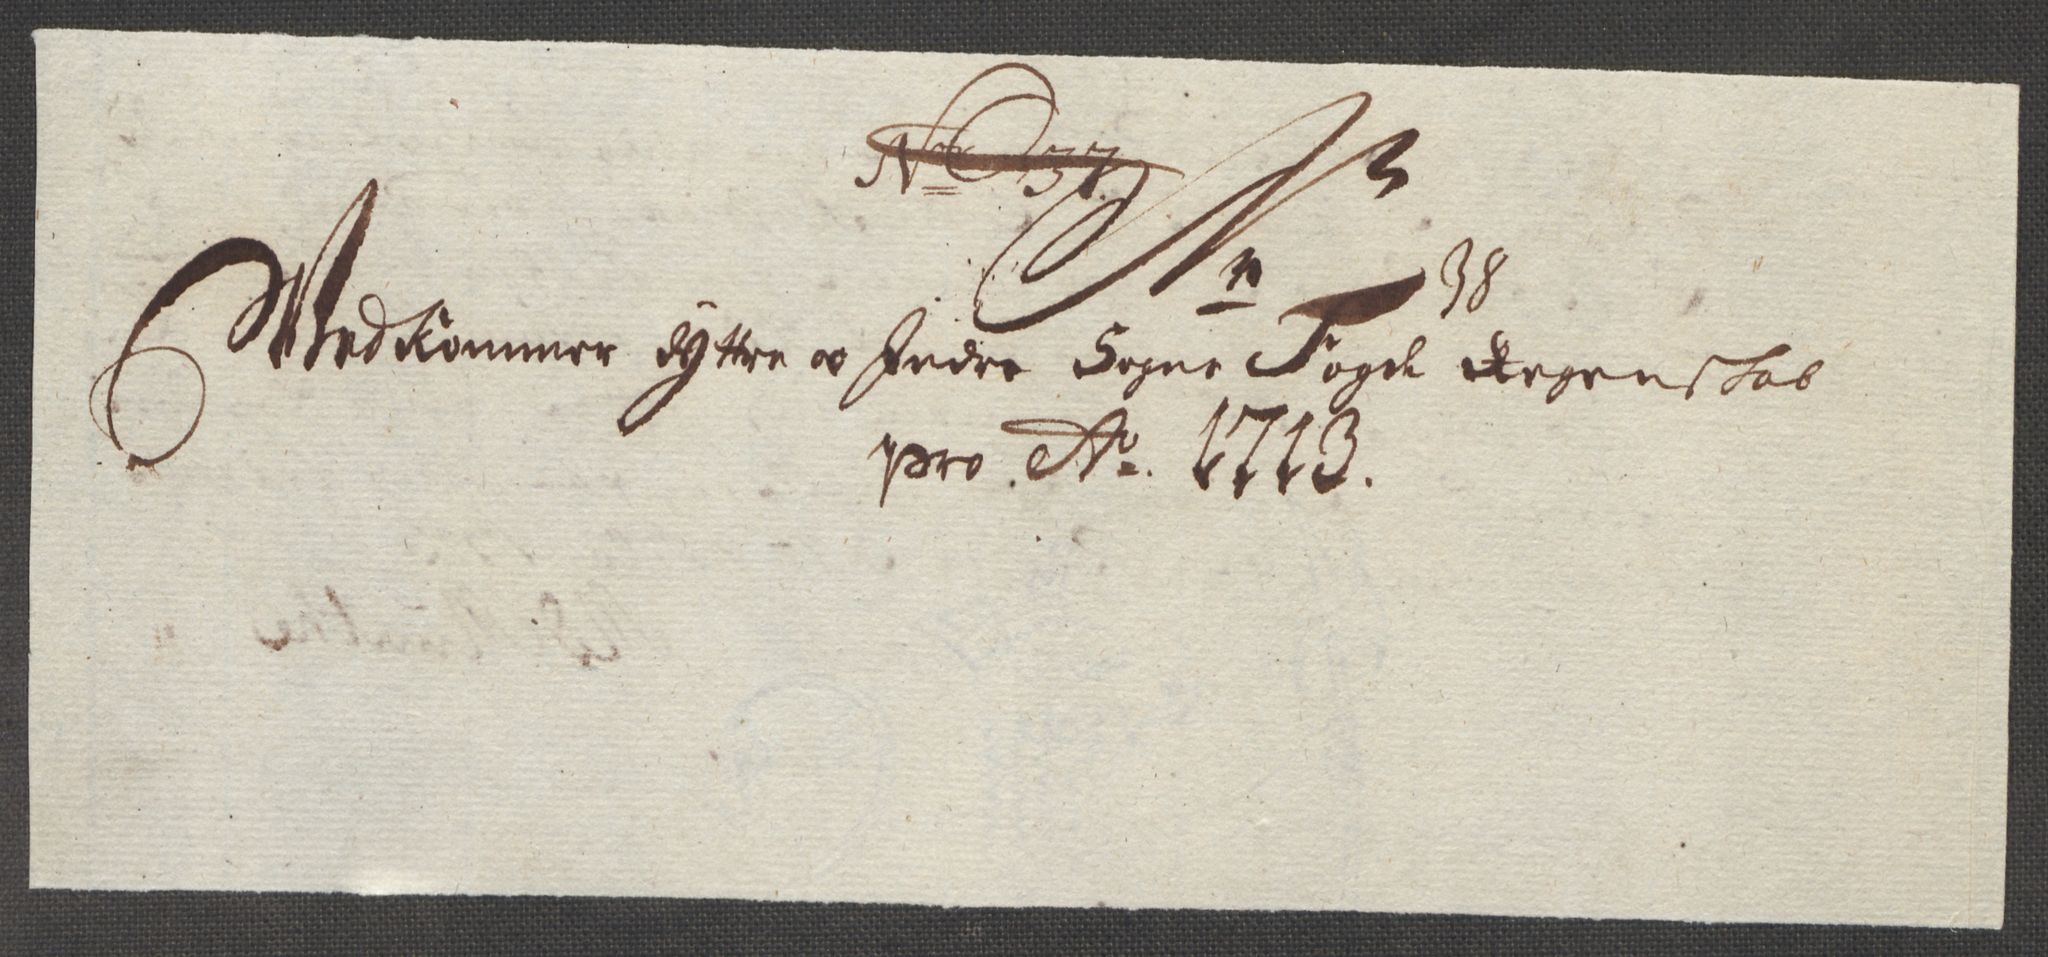 No 37.
No 38
Vedkommer Yttre og Indre Sogns Fogd: Regenskab
pro Ao. 1713.